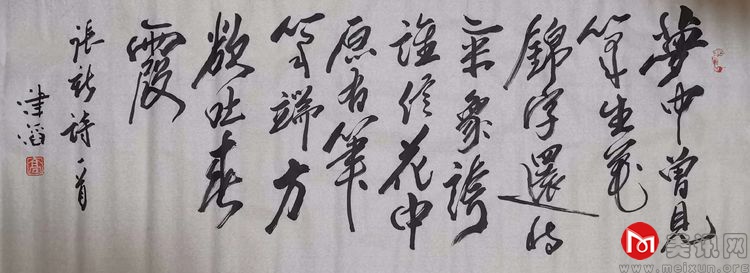 夢中曾見
笔生花
錦字還将
氣象誇
誰信花中
原有筆
笔端方
欲吐春
霞
張新詩一首
津滔
美讯网
www.meixun.org